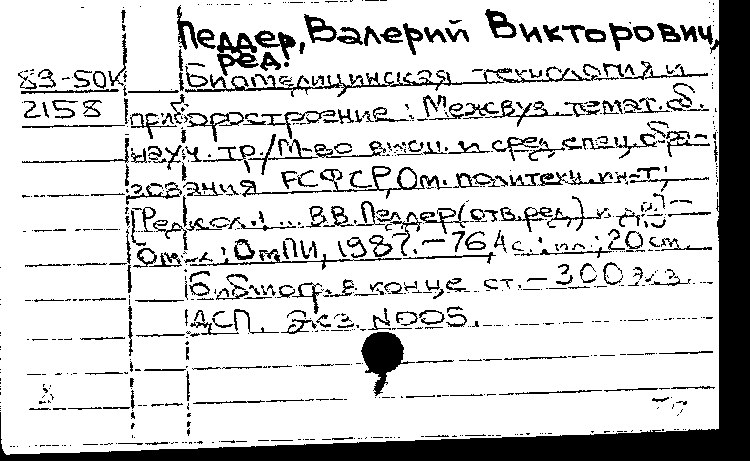 Педдер, Валерий Викторович,
ред.
89-50К Биомедицинская технология и
2158 приборостроение : Межвуз. темат. сб.
науч. тр./М-во высш. и сред. спец. обра-
зования РСФСР, Ом. политехн. ин-т;
[Редкол.: ... В.В. Педдер (отв. ред.) и др.] -
Омск : ОмПИ, 1987. - 76,4 с. : ил.; 20 см.
Библиогр. в конце ст. - 300 экз.
ДСП. Экз. N005.
8